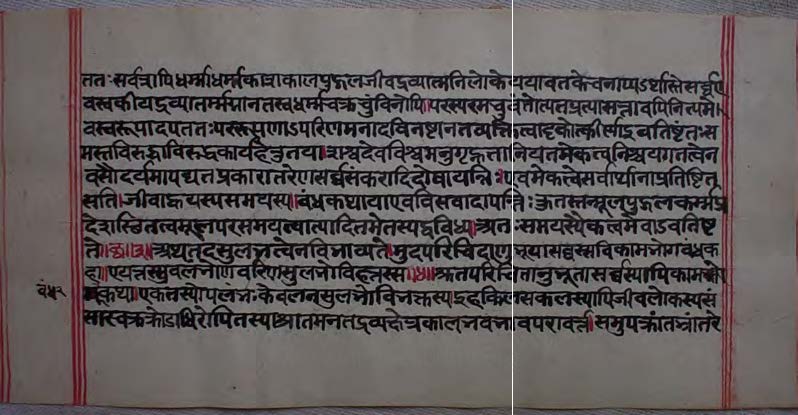 ततः सर्वत्रापि धर्म्माधर्म्माकाशकालपुद्गलजीवद्रव्यात्मनि लोके ये यावंतः केचनाप्यर्थास्ते सर्व्व ए
व स्वकीयद्रव्यांतर्म्मग्नानंतस्वधर्म्मचक्रचुंबिनोपि परस्परमचुंबंतोत्यंतप्रत्यासत्तावपि नित्यमे
व स्वरूपादपतंतः पररूपेणाऽपरिणमनादविनष्टानंतव्यक्तित्वाट्टंकोत्कीर्णा इव तिष्ठंतः स
मस्तविरुद्धाविरुद्धकार्यहेतुतया शश्वदेव विश्वमनुगृह्णंतो नियतमेकत्वनिश्चयगतत्वेनै
व सौंदर्यमापद्यंते प्रकारांतरेण सर्व्वसंकरादिदोषापत्तेः एवमेकत्वे सर्वार्थानां प्रतिष्ठिते
सति जीवाह्वयस्य समयस्य बंधकथाया एव विसंवादापत्तिः कुतस्तन्मूलपुद्गलकर्म्मप्र
देशस्थितत्वमूलपरसमयत्वोत्पादितमेतस्य द्वैविध्यं अतः समयस्यैकत्वमेवाऽवतिष्ट
ते ॥३॥ अथैतदसुलभत्वेन विभाव्यते सुदपरिचिदाणुभूया सव्वस्स वि कामभोगबंधक
हा एयत्तस्सुवलंभो णवरि ण सुलभो विहत्तस्स ॥४॥ श्रुतपरिचितानुभूता सर्व्वस्यापि कामभो
गबंधकथा एकत्वस्योपलंभः केवलं न सुलभो विभक्तस्य इह किल सकलस्यापि जीवलोकस्य सं
सारचक्रक्रोडाधिरोपितस्याश्रांतमनंतद्रव्यक्षेत्रकालभवभावपरावर्त्तैः समुपक्रांतभ्रांतेरे